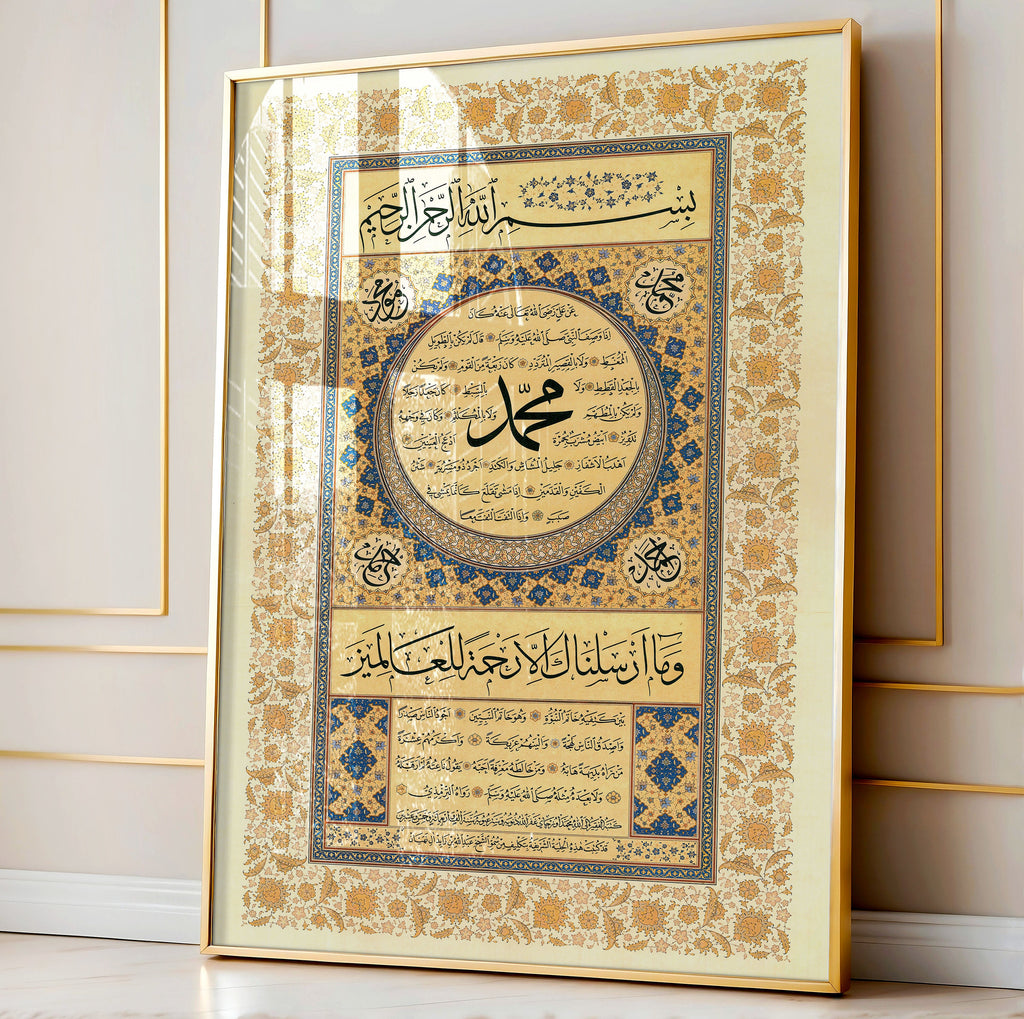 بسم الله الرحمن الرحيم
عن علي رضي الله تعالى عنه كان
اذا وصف النبي صلى الله عليه وسلم قال لم يكن بالطويل
الممغط ولا بالقصير المتردد كان ربعة من القوم ولم يكن
بالجعد القطط ولا بالسبط كان جعدا رجلا
محمد
ولم يكن بالمطهم ولا بالمكلثم وكان في وجهه
تدوير ابيض مشرب بحمرة ادعج العينين
اهدب الاشفار جليل المشاش والكتد اجرد ذو مسربة شثن
الكفين والقدمين اذا مشى تقلع كانما يمشي في
صبب واذا التفت التفت معا
وما أرسلناك إلا رحمة للعالمين
بين كتفيه خاتم النبوة وهو خاتم النبيين اجود الناس صدرا
واصدق الناس لهجة والينهم عريكة واكرمهم عشرة
من رآه بديهة هابه ومن خالطه معرفة احبه يقول ناعته لم ار قبله
ولا بعده مثله صلى الله عليه وسلم رواه الترمذي